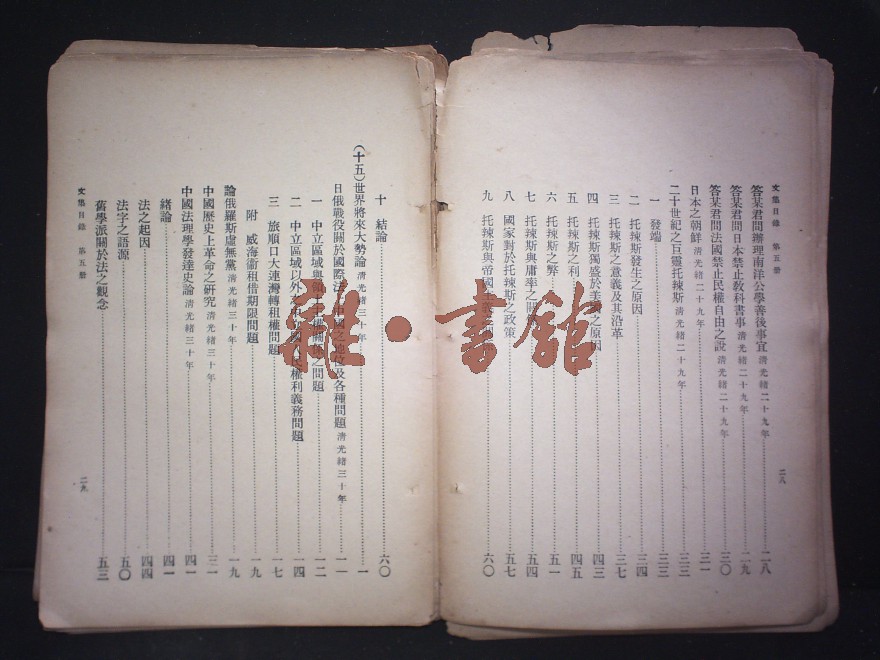 文集目錄 第五册
二八
答某君問辦理南洋公學善後事宜 清光緒二十九年 二八
答某君問日本禁止教科書事 清光緒二十九年 二九
答某君問法國禁止民權自由之說 清光緒二十九年 三〇
日本之朝鮮 清光緒二十九年 三一
二十世紀之巨靈托辣斯 清光緒二十九年 三三
一 發端 三三
二 托辣斯發生之原因 三四
三 托辣斯之意義及其沿革 三七
四 托辣斯獨盛於美國之原因 四三
五 托辣斯之利 四五
六 托辣斯之弊 五一
七 托辣斯與庸率之關係 五四
八 國家對於托辣斯之政策 五七
九 托辣斯與帝國主義之 六〇
十 結論 六〇
(十五)世界將來大勢論 清光緒三十年 一
日俄戰役關於國際法上中國之地位及各種問題 清光緒三十年 一一
一 中立區域與領土主權關係之問題 一二
二 中立區域以外 國人民權利義務問題 一四
三 旅順口大連灣轉租權問題 一七
附 威海衞租借期限問題 一九
論俄羅斯虛無黨 清光緒三十年 一九
中國歷史上革命之研究 清光緒三十年 三一
中國法理學發達史論 清光緒三十年 四一
緒論 四一
法之起因 四四
法字之語源 五〇
舊學派關於法之觀念 五三
文集目錄 第五册
二九
雜·書館